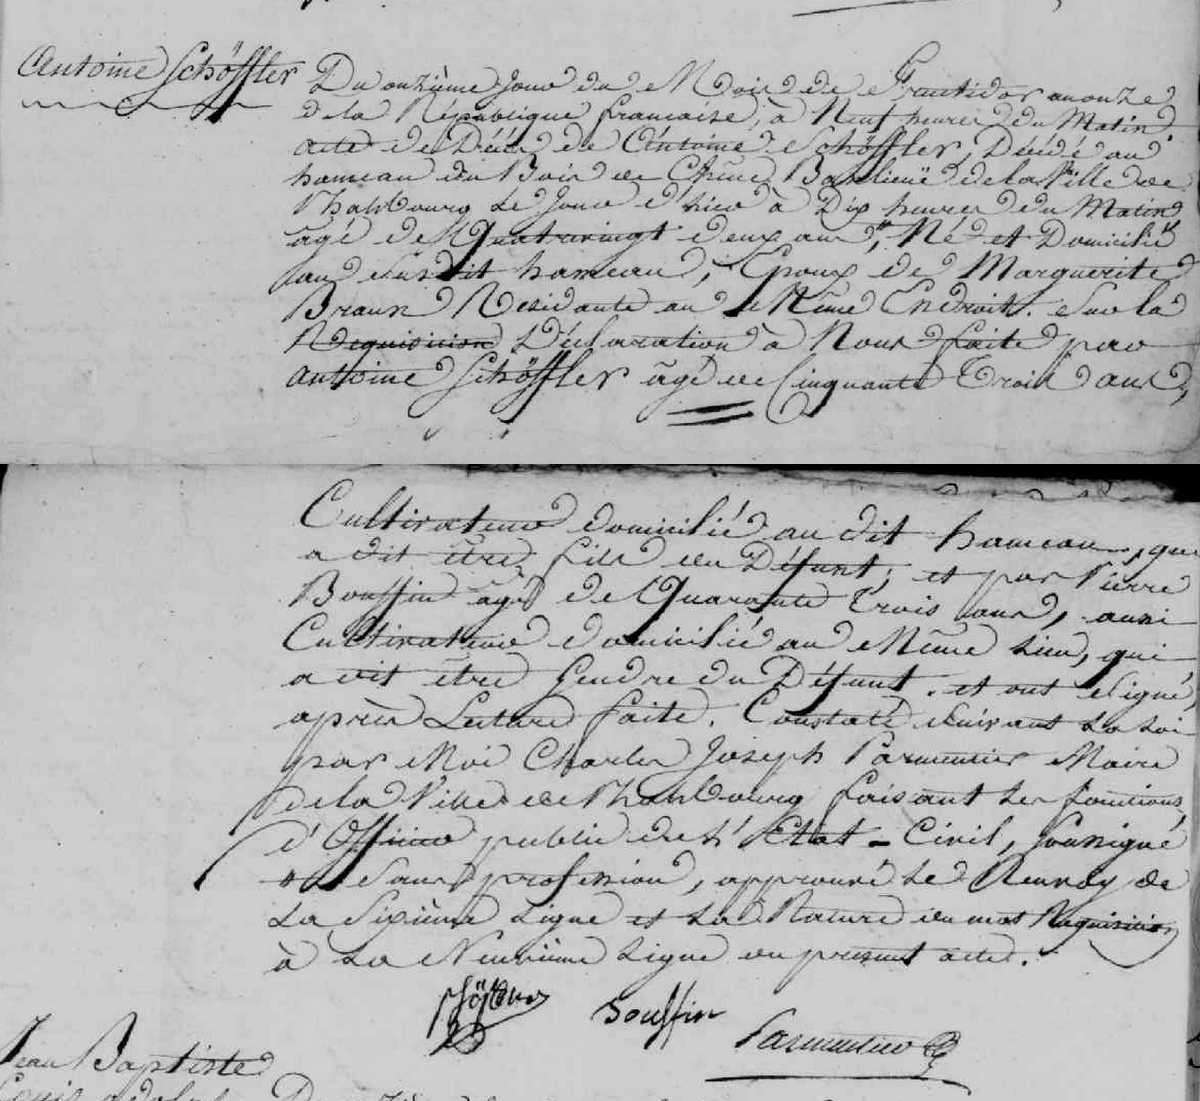 Antoine Schöffler
Du onzième Jour du Mois de Fructidor an onze
de la République française, à Neuf heures du Matin.
acte de Décès de Antoine Schöffler, Décédé au
hameau du Bois de Chêne Banlieuë de la Ville de
Phalsbourg Le Jour d'hier à Dix heures du Matin,
âgé de Quatrevingt deux ans, # Né et Domicilié
au Susdit hameau, Epoux de Marguerite
Braun Residante au Même Endroit. Sur la
Requisicion Déclaration à Nous faite par
Antoine Schöffler âgé de Cinquante Trois ans,
Cultivateur domicilié au dit hameau, qui
a dit être fils du Défunt; et par Pierre
Bouffin âgé de Quarante Trois ans, aussi
Cultivateur domicilié au Même Lieu, qui
a dit être Gendre du Défunt. et ont Signé,
après Lecture faite. Constaté Suivant La Loi
par Moi Charles Joseph Parmentier Maire
de la Ville de Phalsbourg faisant Les fonctions
d'Officier public de L'Etat-Civil, Soussigné
# Sans profession, approuvé Le Renvoy de
La Sixième Ligne et La Rature du mot Requisicion
à La Neuvième Ligne du present acte.
Bouffin
Parmentier
Jean Baptiste
Louis adolph